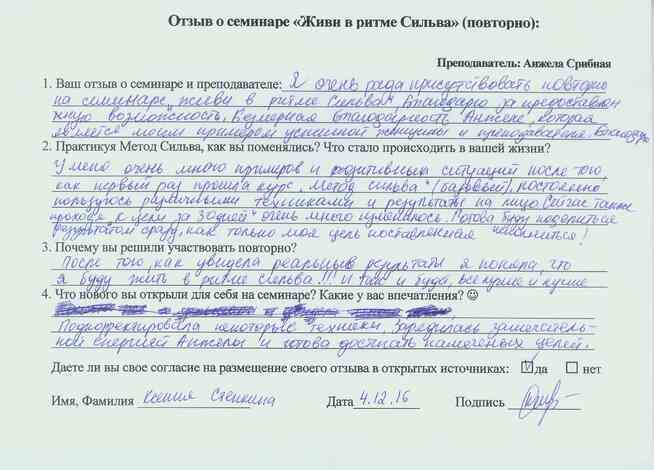 Отзыв о семинаре «Живи в ритме Сильва» (повторно):
Преподаватель: Анжела Срибная
1. Ваш отзыв о семинаре и преподавателе: Я очень рада присутствовать повторно
на семинаре „живи в ритме Сильва“, благодарю за предоставлен
ную возможность. Безмерная благодарность Анжеле, которая
является моим примером успешной женщины и преподавателя. Благодарю
2. Практикуя Метод Сильва, как вы поменялись? Что стало происходить в вашей жизни?
У меня очень много примеров и позитивных ситуаций после того,
как первый раз прошла курс „Метод Сильва“ (базовый), постоянно
пользуюсь различными техниками и результаты на лицо. Сейчас также
проходя к цели за 30 дней“ очень много изменилось. Готова буду поделиться
результатом сразу, как только моя цель поставленная исполнится!
3. Почему вы решили участвовать повторно?
После того, как увидела реальные результаты я поняла, что
я буду жить в ритме Сильва!!! И так и буду, все лучше и лучше
4. Что нового вы открыли для себя на семинаре? Какие у вас впечатления? ☺
Подкорректировала некоторые техники, зарядилась замечатель-
ной енергией Анжелы и готова достигать намеченых целей.
Даете ли вы свое согласие на размещение своего отзыва в открытых источниках: ☑ да ☐ нет
Имя, Фамилия Ксения Дата 4.12.16 Подпись